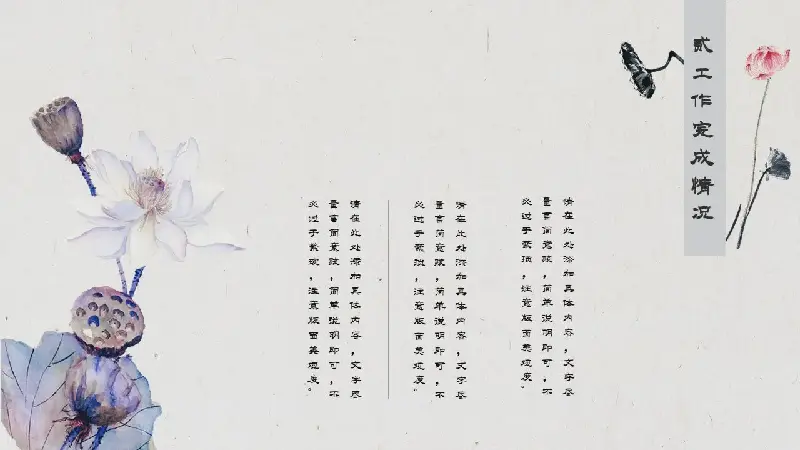 贰工作完成情况
请在此处添加具体内容，文字尽
量言简意赅，简单说明即可，不
必过于繁琐，注意版面美观度。
请在此处添加具体内容，文字尽
量言简意赅，简单说明即可，不
必过于繁琐，注意版面美观度。
请在此处添加具体内容，文字尽
量言简意赅，简单说明即可，不
必过于繁琐，注意版面美观度。